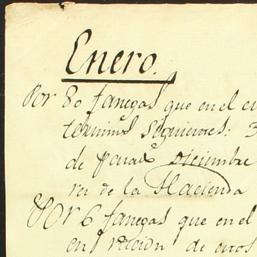 Enero.
Por 80 fanegas que en el
terminos siguientes: 3
de
Diciembre
de la Hacienda
Por 6 fanegas que en el
en de